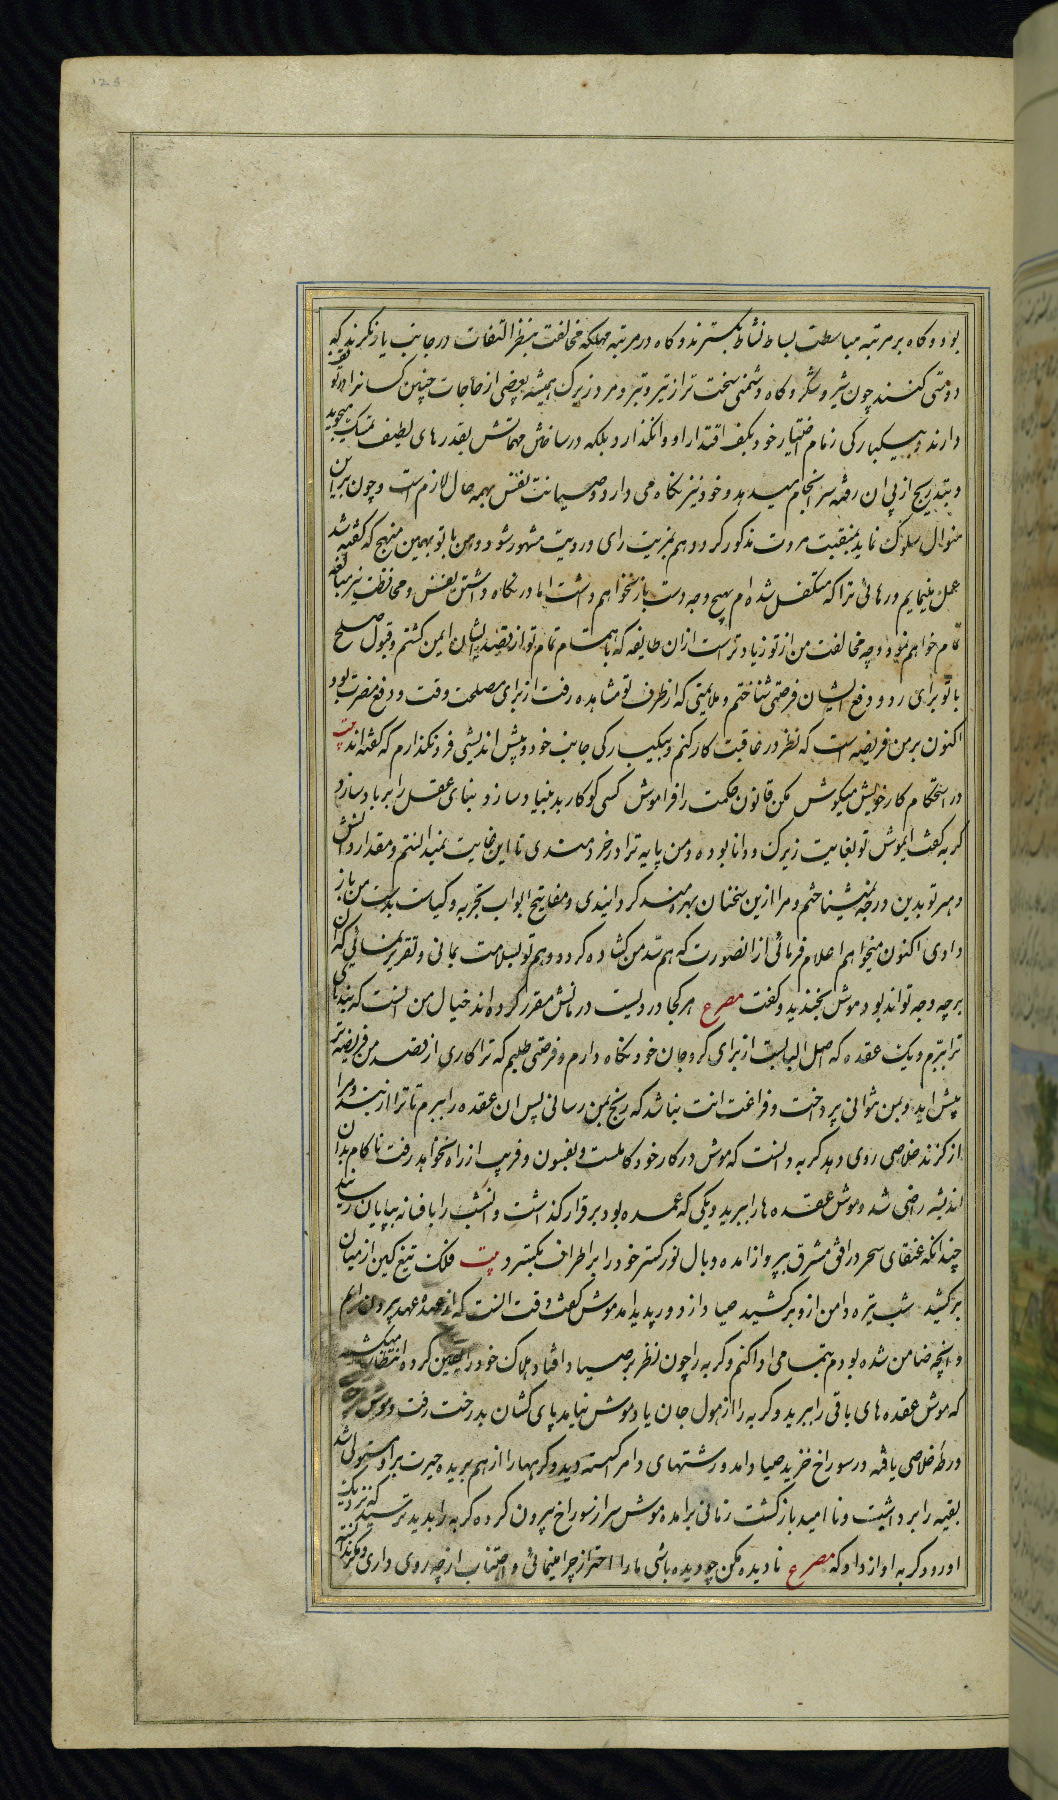 بود و کاه بر مرتبه مباسطت بساط نشاط بکسترند و کاه در مرتبه مهلکه مخالفت بنظر التفات در جانب یار نکرند که
دوستی کنند چون شیر و شکر و کاه دشمنی سخت تر از تیر و تبر و مرد زیرک همیشه بعضی از حاجات چنین کسانرا در
دارند و بیکبارکی زمام اختیار خود بکف اقتدار او وانکذارد بلکه در ساختن مهماتش بقدرهای لطیف تمسک میجوید
و بتدریج از پی ان رفته سرانجام میدهد و خود نیز نکاه می دارد و صیانت نفس بهمه حال لازمست و چون برین
منوال سلوک نماید بمنقبت مروت مذکور کردد و هم بمزیت رای و رویت مشهور شود و من با تو بهمین منهج که کفته شد
عمل مینمایم و رهائی ترا که متکفل شده ام بهیچ وجه دست باز نخواهم داشت اما در نکاه داشتن نفس و محافظت نیز مبالغه
تمام خواهم نمود و چه مخالفت من از تو زیادتر است از ان طایفه که باهتمام تمام تو از قصد ایشان ایمن کشتم و قبول صلح
با تو برای رد و دفع ایشان فرضی شناختم و ملایمتی که از طرف تو مشاهده رفت از برای مصلحت وقت و دفع مضرت بود
اکنون بر من فریضه است که نظر در عاقبت کار کنم و بیکبارکی جانب خود و پیش اندیشی فرو نکذارم که کفته اند بیت
در استحکام کار خویش میکوش مکن قانون حکمت را فراموش کسی کو کار بد بنیاد سازد بنای عقل را بر باد سازد
کربه کفت ای موش تو بغایت زیرک و دانا بوده و من پایه ترا در خردمندی تا این غایت نمیدانستم و مقدار دانش
و هنر تو بدین درجه نمیشناختم و مرا ازین سخنان بهره مند کردانیدی و مفاتیح ابواب تجربه و کیاست بدست من باز
دادی اکنون میخواهم اعلام فرمائی از انصورت که هم سد من کشاده کردد و هم تو بسلامت بمانی و تقریر نمائی که ان
بر چه وجه تواند بود موش بخندید و کفت مصرع هر کجا دردیست درمانش مقرر کرده اند خیال من انست که بندهای
ترا ببرم و یک عقده که اصل الباب است از برای کرو جان خود نکاه دارم و فرصتی طلبم که ترا کاری از قصد من فریضه تر
پیش اید و بمن نتوانی پرداخت و فراغت انت نباشد که رنج بمن رسانی پس ان عقده را ببرم تا ترا از بند و مرا
از کزند خلاصی روی دهد کربه دانست که موش در کار خود کاملست و بفسون و فریب از راه نخواهد رفت ناکام بدان
اندیشه راضی شد و موش عقده ها را ببرید و یکی که عمده بود برقرار کذاشت و انشب را بافسانه بپایان رسانیدند
چندانکه عنقای سحر در افق مشرق بپرواز امد و بال نور کستر خود را بر اطراف بکسترد بیت فلک تیغ کین از میان
بر کشید شب تیره دامن ازو بر کشید صیاد از دور پدید امد موش کفت وقت انست که از عهده عهد بیرون ایم
و انچه ضامن شده بودم بتمامی ادا کنم و کربه را چون نظر بر صیاد افتاد هلاک خود را یقین کرده انتظار میکشید
که موش عقده های باقی را ببرید و کربه را از هول جان یاد موش نیامد پای کشان بر درخت رفت و موش
ورطه خلاصی یافته در سوراخ خزید صیاد امد و رشتهای دام کسسته دید و کرهها را از هم بریده حیرت بر او مستولی شد
بقیه را برداشت و ناامید بازکشت زمانی برامد موش سر از سوراخ بیرون کرده کربه را بدید ترسید که نزدیک
او رود کربه اواز داد که مصرع نادیده مکن چو دیده باشی ما را احتراز چرا مینمائی و اجتناب از چه روی داری